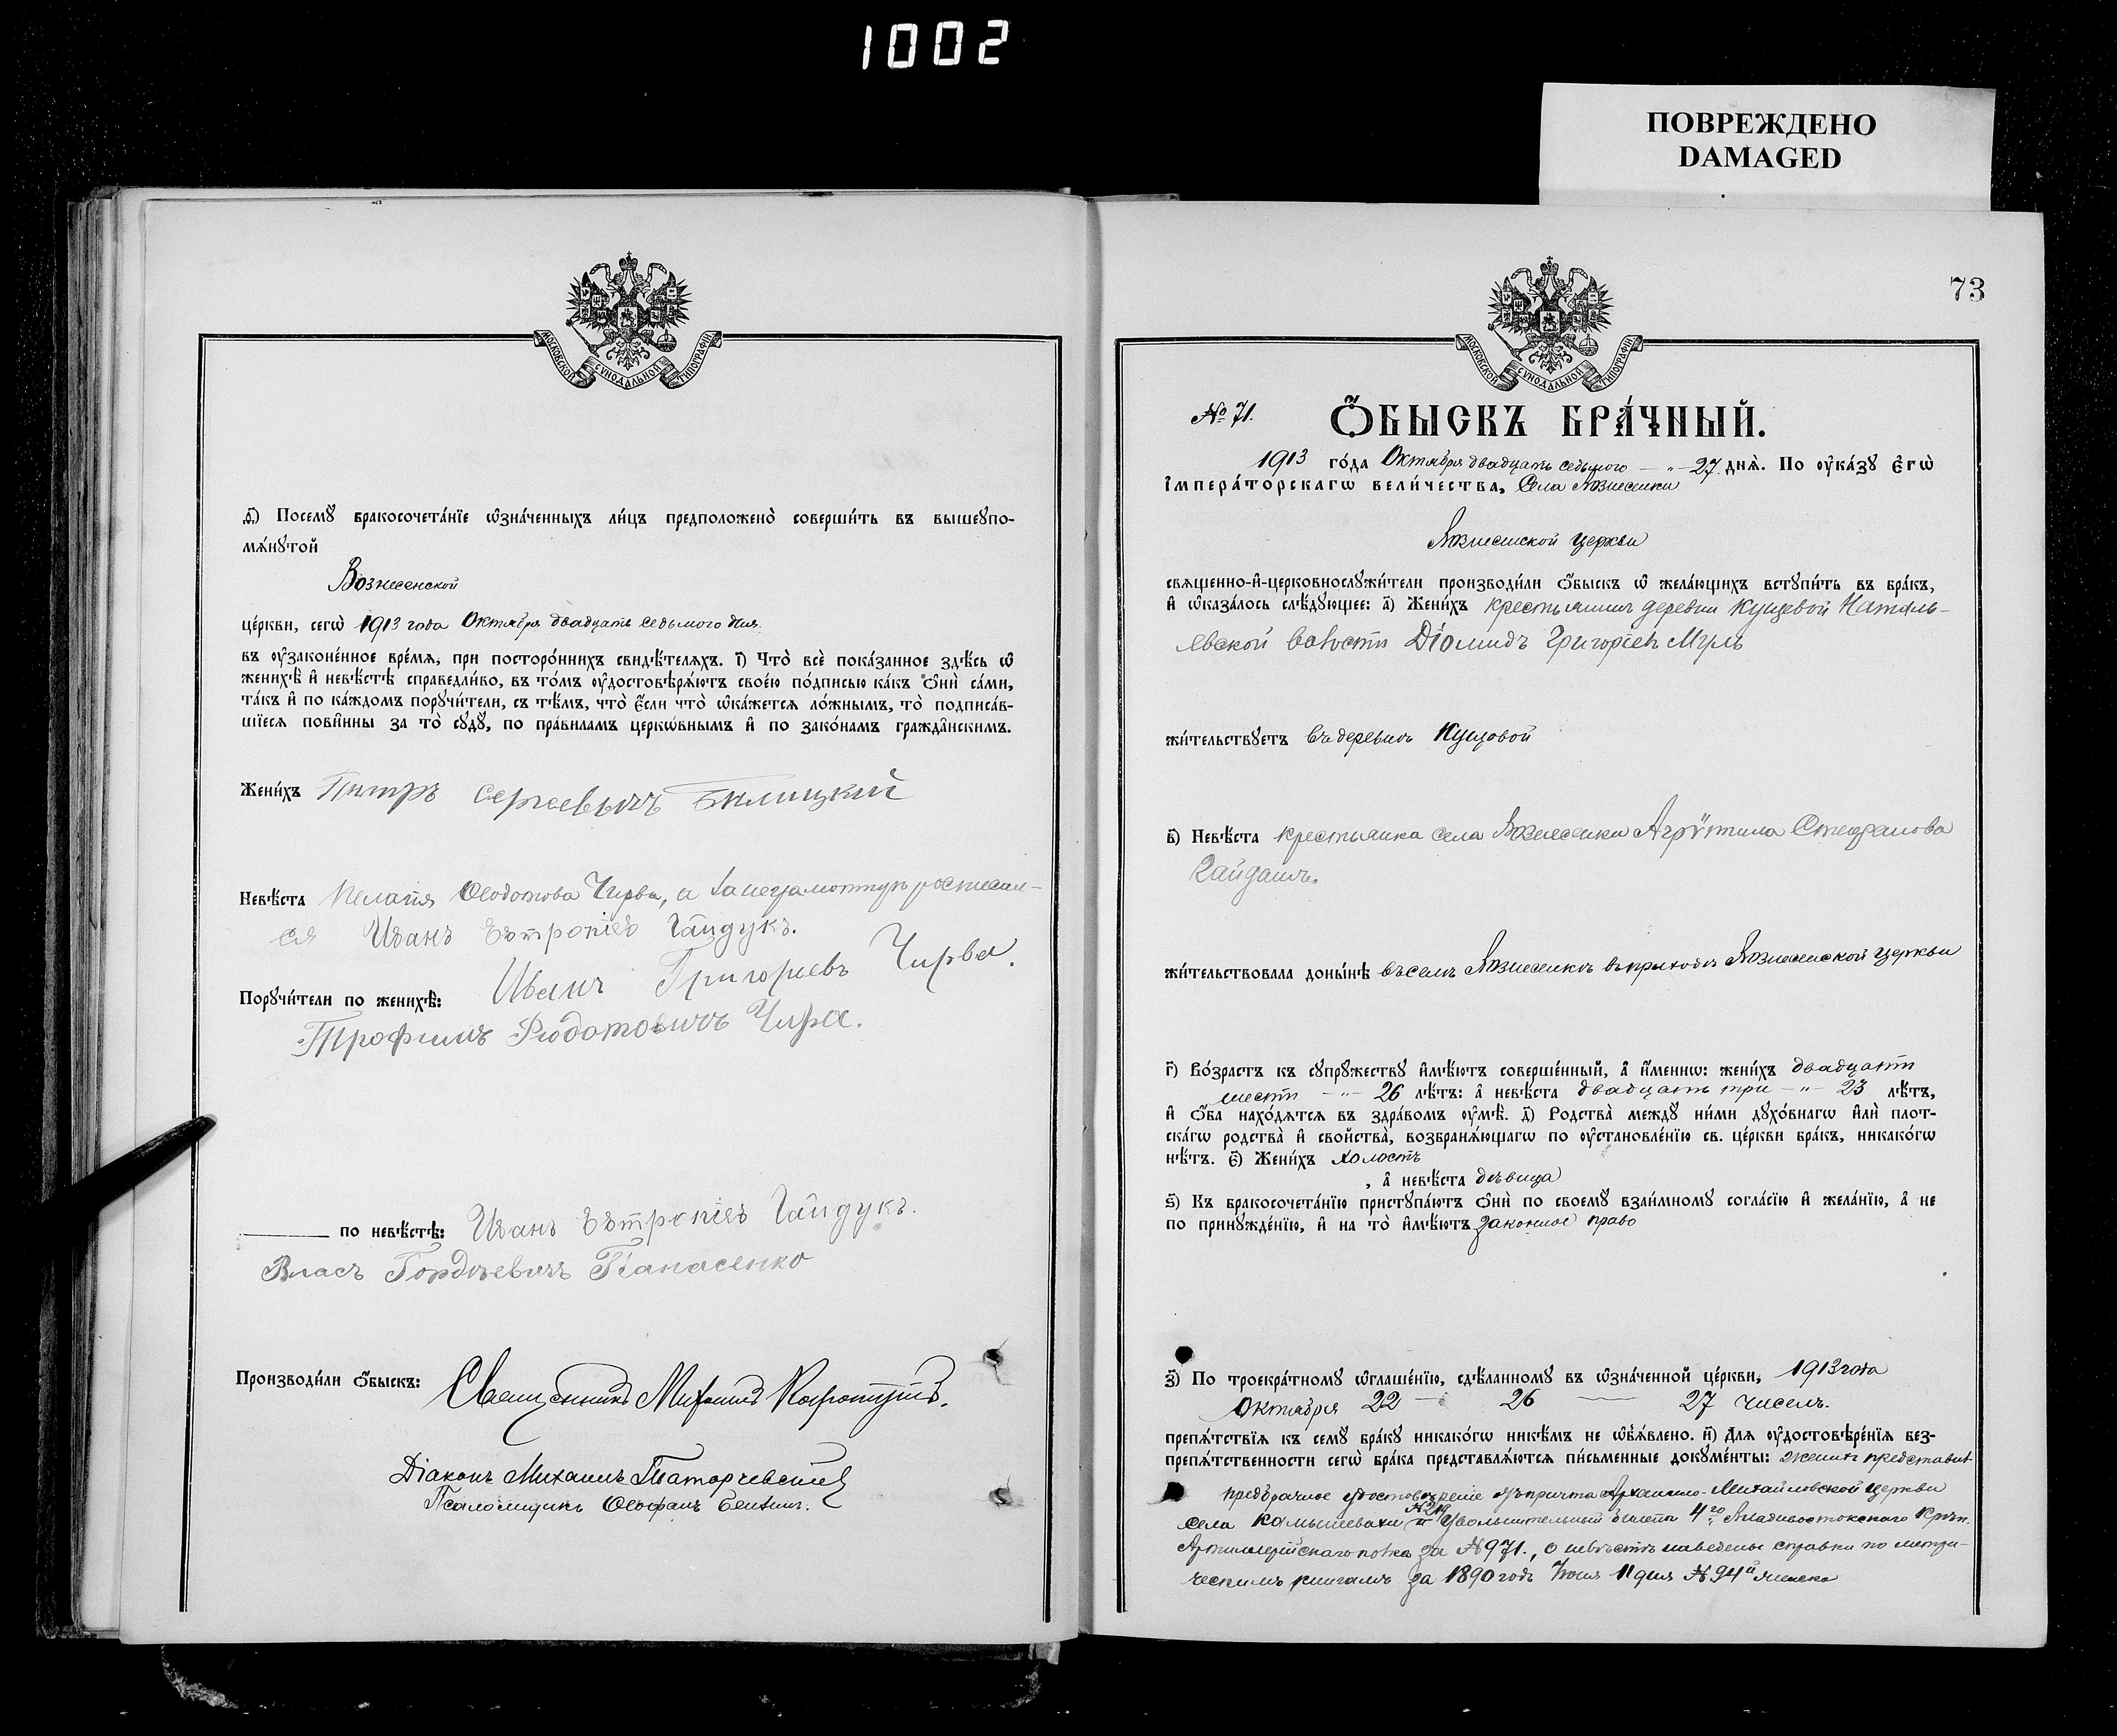 1002
ПОВРЕЖДЕНО
DAMAGED
МОСКОВСКОЙ СѴНОДАЛЬНОЙ ТИПОГРАФІИ
ѳ҃) Посемꙋ бракосочета́нїе ѡ҆зна́ченныхъ ли́цъ предположено̀ соверши́ть въ вышеꙋпо-
мѧ́нꙋтой
Вознесенской
це́ркви, сегѡ̀ 1913 года Октября двадцать седьмого дня
въ ᲂу҆законе́нное вре́мѧ, при посторо́ннихъ свидѣ́телѧхъ. і҃) Что̀ всѐ пока́занное здѣ́сь ѡ҆
женихѣ̀ и҆ невѣ́стѣ справедли́во, въ то́мъ ᲂу҆достовѣрѧ́ютъ свое́ю по́дписью ка́къ ѻ҆нѝ са́ми,
та́къ и҆ по ка́ждомъ порꙋчи́тели, съ тѣ́мъ, что̀ є҆́сли что̀ ѡ҆ка́жетсѧ ло́жнымъ, то̀ подписа́в-
шїесѧ пови́нны за то̀ сꙋдꙋ̀, по пра́виламъ церкѡ́внымъ и҆ по зако́намъ гражда́нскимъ.
Жени́хъ Питръ Сергеевичъ Билицкий
Невѣ́ста Пелагія Ѳеодотова Чирва, а за неграмотную росписал-
ся Иванъ Евтропіев Гайдукъ.
Порꙋчи́тели по женихѣ̀: Иванъ Григориевъ Чирва.
Трофимъ Фіодотовичъ Чирва.
по невѣ́стѣ: Иванъ Евтропіевъ Гайдукъ.
Власъ Гордѣевичъ Панасенко
Производи́ли ѻ҆́быскъ: Священникъ Михаилъ
Діаконъ Михаилъ
Псаломщикъ Ѳеофанъ
73
МОСКОВСКОЙ СѴНОДАЛЬНОЙ ТИПОГРАФІИ
№ 71. Ѻ҆́БЫСКЪ БРА́ЧНЫЙ.
1913 го́да Октября двадцать седьмого — „ — 27. днѧ̀. По ᲂу҆ка́зꙋ є҆гѡ̀
і҆мпера́торскагѡ вели́чества, Села Вознесенки
Вознесенской церкви
свѧщенно-и҆-церковнослꙋжи́тели производи́ли ѻ҆́быскъ ѡ҆ жела́ющихъ встꙋпи́ть въ бра́къ,
и҆ ѡ҆каза́лось слѣ́дꙋющее: а҃) Жени́хъ крестьянинъ деревни Кущевой Наталь-
евской волости Діомидъ Григоріевъ Муль
жи́тельствꙋетъ въ деревнѣ Кущовой
в҃) Невѣ́ста крестьянка села Вознесенки Агрѵппина Стефанова
Гайдамъ.
жи́тельствовала доны́нѣ въ селѣ Вознесенкѣ въ приходѣ Вознесенской церкви
г҃) Во́зрастъ къ сꙋпрꙋ́жествꙋ и҆мѣ́ютъ соверше́нный, а҆ и҆́меннѡ: жени́хъ двадцати
шести — „ — 26 лѣ́тъ: а҆ невѣ́ста двадцать три — „ — 23 лѣ́тъ,
и҆ ѻ҆́ба нахо́дѧтсѧ въ здра́вомъ ᲂу҆мѣ̀. д҃) Родства̀ междꙋ̀ ни́ми дꙋхо́внагѡ и҆лѝ плот-
ска́гѡ родства̀ и҆ сво́йства̀, возбранѧ́ющагѡ по ᲂу҆становле́нїю св. це́ркви бра́къ, никако́гѡ
нѣ́тъ. є҃) Жени́хъ холостъ
, а҆ невѣ́ста дѣвица
ѕ҃) Къ бракосочета́нїю пристꙋпа́ютъ ѻ҆нѝ по своемꙋ̀ взаи́мномꙋ согла́сїю и҆ жела́нїю, а҆ не
по принꙋжде́нїю, и҆ на то̀ и҆мѣ́ютъ законное право
з҃) По троекра́тномꙋ ѡ҆глаше́нїю, сдѣ́ланномꙋ въ ѡ҆зна́ченной це́ркви, 1913 года
Октября 22 — 26 — 27 чиселъ.
препѧ́тствїѧ къ семꙋ̀ бра́кꙋ никако́гѡ никѣ́мъ не ѡ҆б̾ѧ́влено. и҃) Длѧ ᲂу҆достовѣре́нїѧ без-
препѧ́тственности сегѡ̀ бра́ка представлѧ́ютсѧ пи́сьменные докꙋме́нты: женихъ представилъ
предбрачное удостовѣреніе отъ причта Архангело-Михайловской церкви
села Камышевахи № 219 и увольнительный билетъ 4го Владивостокскаго Крѣп.
Артиллерійскаго полка за № 971., о невѣстѣ наведены справки по метри-
ческимъ книгамъ за 1890 годъ Іюня 11 дня № 94й женска